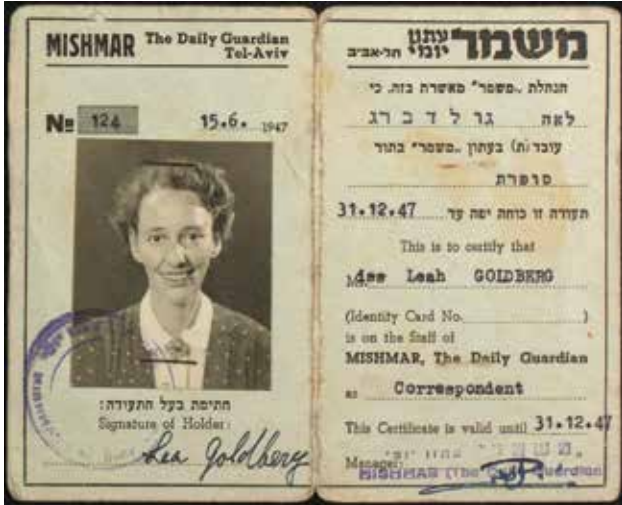 MISHMAR The Daily Guardian
Tel-Aviv
№ 124 15.6. 1947
חתימת בעל התעודה:
Signature of Holder:
Lea Goldberg
משמר עתון יומי תל-אביב
הנהלת „משמר" מאשרת בזה, כי
לאה גולדברג
עובד(ת) בעתון „משמר" בתור
סופרת
תעודה זו כוחה יפה עד 31.12.47
This is to certify that
Miss Leah GOLDBERG
(Identity Card No. )
is on the Staff of
MISHMAR, The Daily Guardian
as Correspondent
This Certificate is valid until 31.12.47
Manager:
"משמר" עתון יומי
MISHMAR (The Daily Guardian